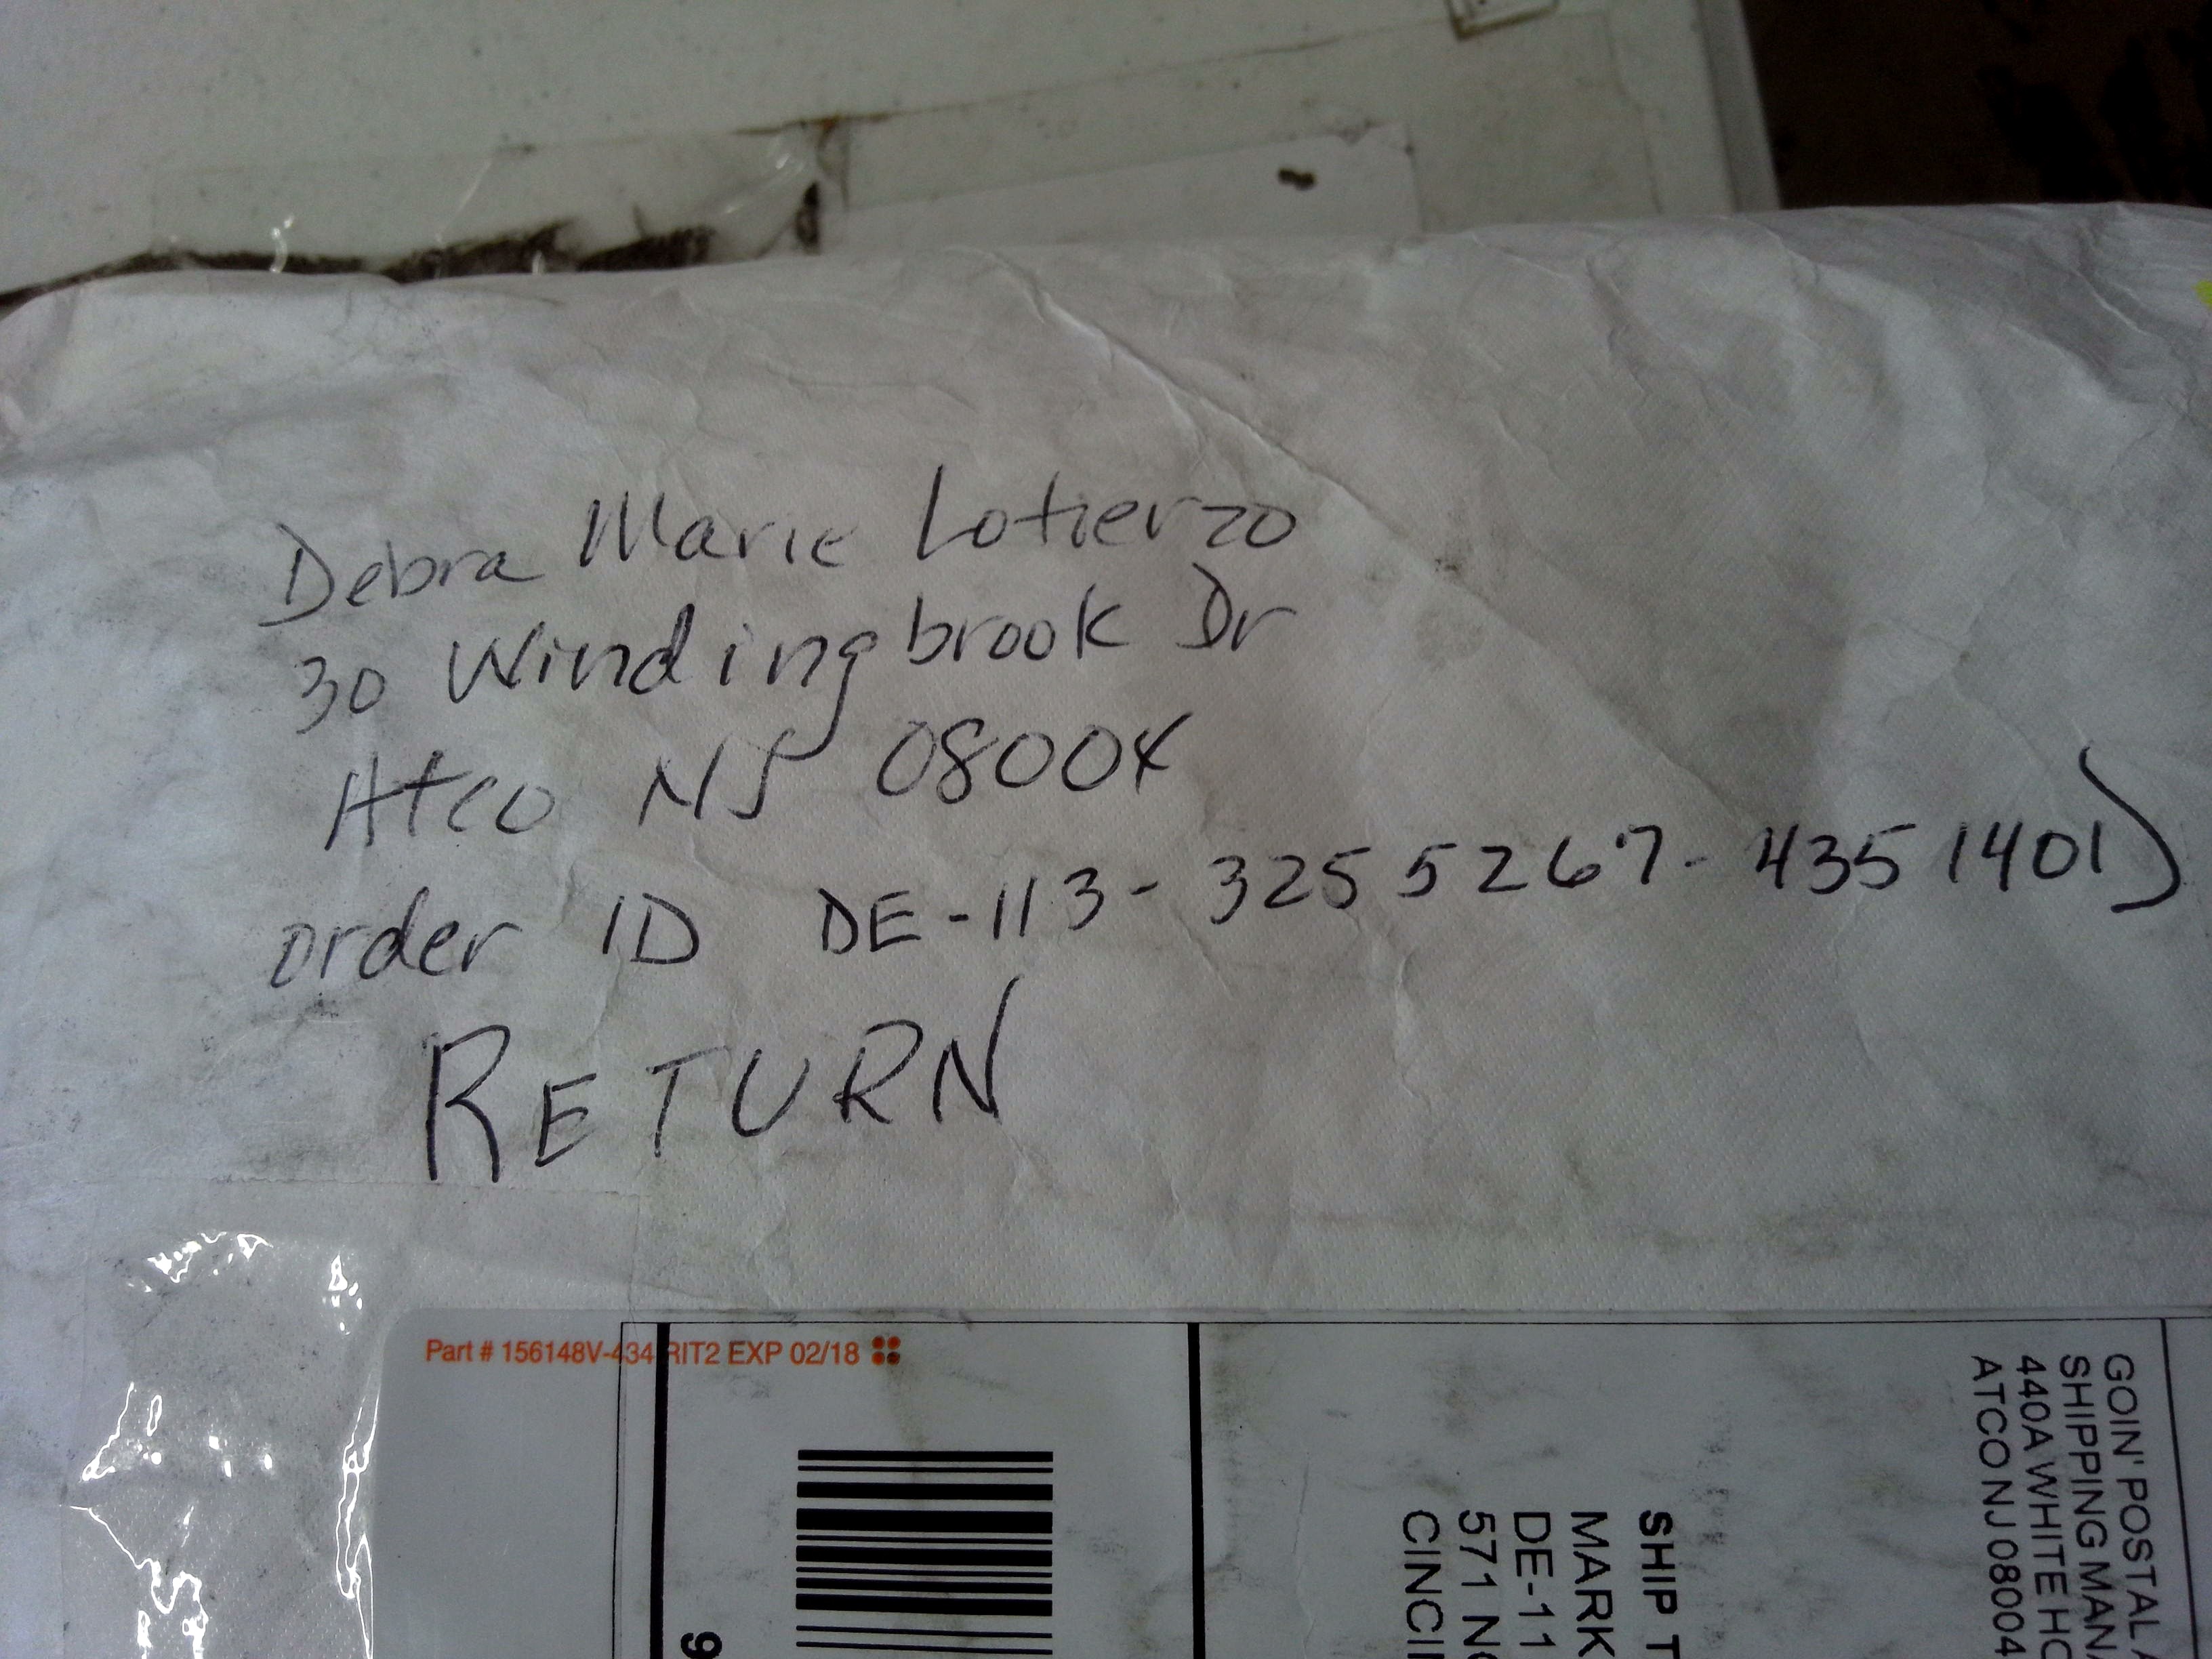 Debra Marie Lotierzo
30 Windingbrook Dr
Atco NJ 08004
order ID DE-113-3255267-4351401)
RETURN
Part # 156148V-434 RIT2 EXP 02/18
GOIN' POSTAL A
SHIPPING MANA
440A WHITE HO
ATCO NJ 08004
SHIP T
MARK
DE-11
571 NO
CINCI
9